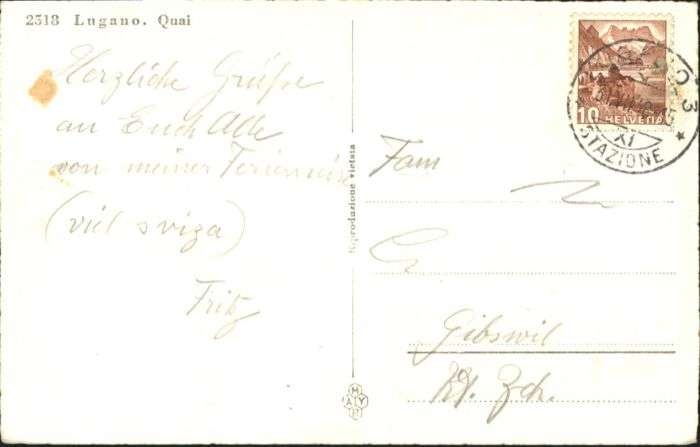 2518 Lugano. Quai
Herzliche Grüsse
an Euch Alle
von meiner Ferienreise
(viel sviza)
Fritz
Riproduzione vietata
Fam
Gibswil
Kt. Zch.
10
HELVETIA
XI
STAZIONE